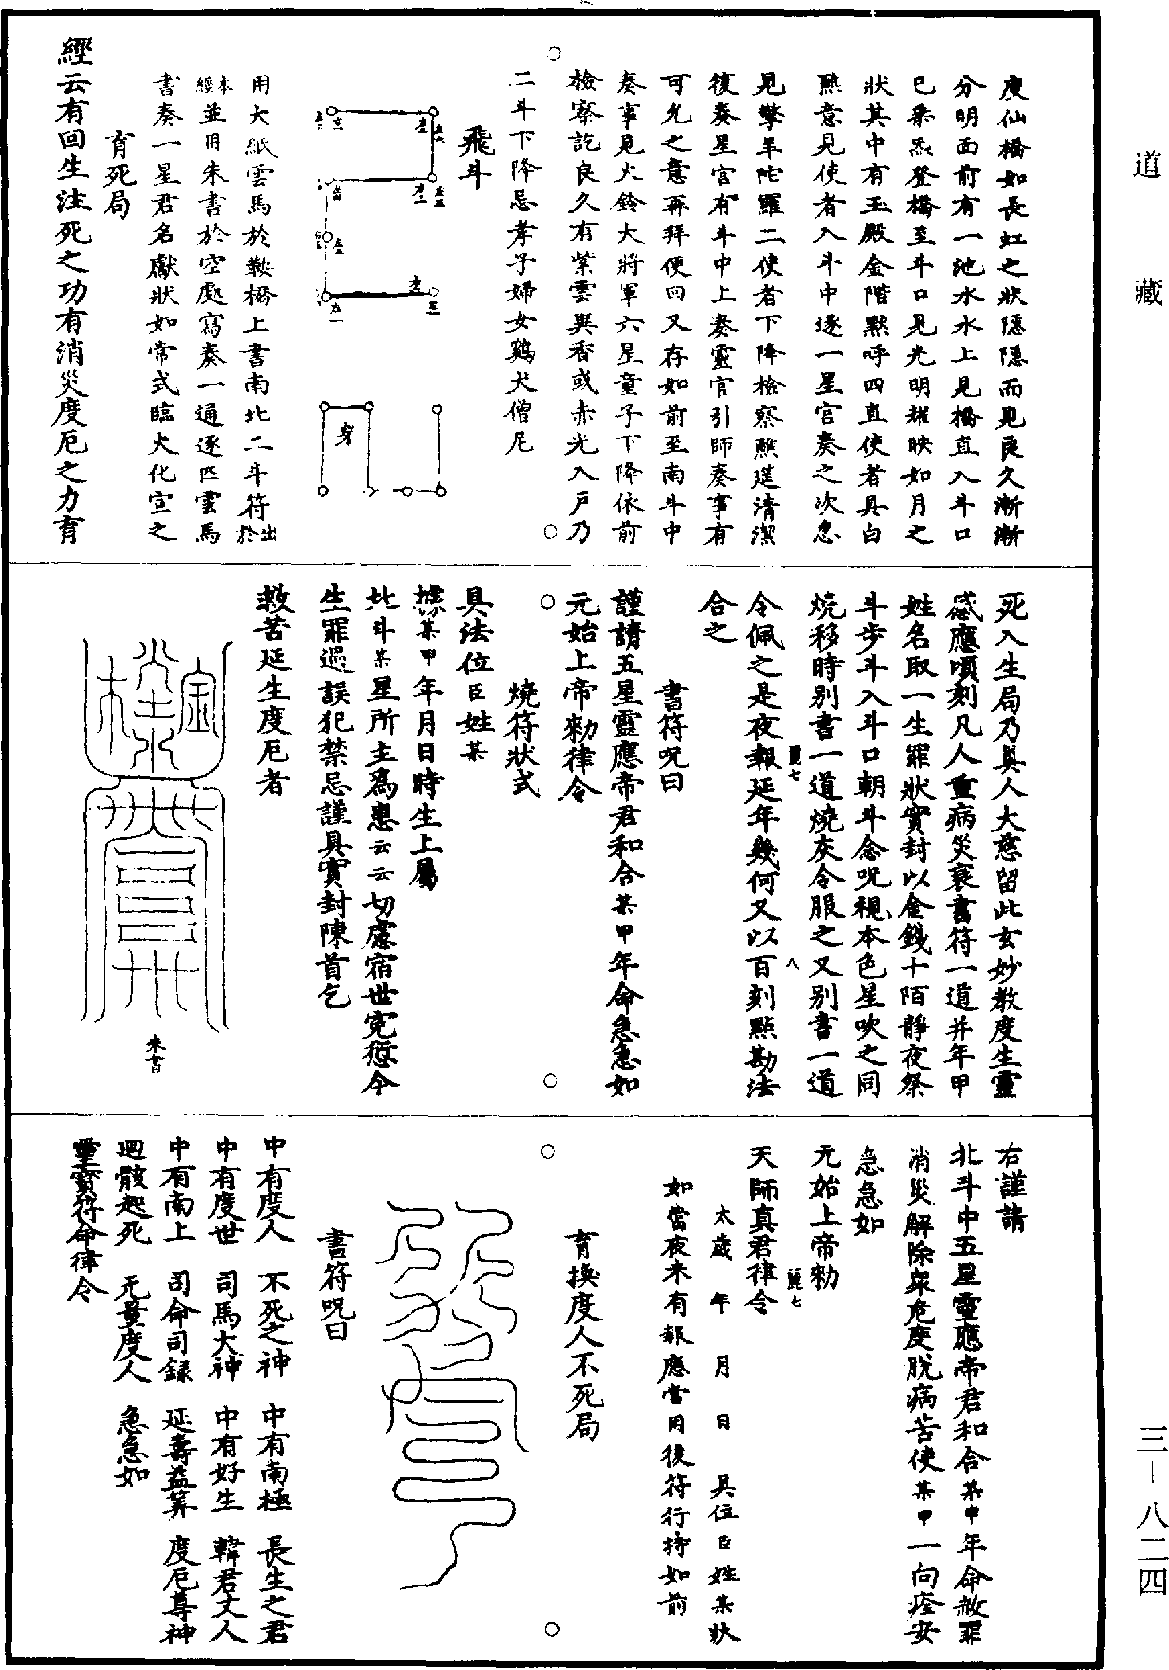 道藏
三—八二四
度仙橋如長虹之狀隱隱而見良久漸漸
分明面前有一池水水上見橋直入斗口
已乘炁登橋至斗口見光明耀映如月之
狀其中有玉殿金階默呼四直使者具白
熙意見使者入斗中逐一星宮奏之次急
見擎羊陀羅二使者下降檢察熙筵清潔
復奏星宮有斗中上奏靈官引師奏事有
可允之意再拜便回又存如前至南斗中
奏事見火鈴大將軍六星童子下降依前
檢察訖良久有紫雲異香或赤光入戶乃
二斗下降忌孝子婦女鷄犬僧尼
飛斗
身
用大紙雲馬於鞍橋上書南北二斗符出於
本經並用朱書於空處寫奏一通逐匹雲馬
書奏一星君名獻狀如常式臨火化宣之
育死局
經云有回生注死之功有消災度厄之力育
死入生局乃異人大慈留此玄妙教度生靈
感應頃刻凡人重病災衰書符一道并年甲
姓名取一生罪狀實封以金錢十陌靜夜祭
斗步斗入斗口朝斗念呪視本色星吹之同
燒移時别書一道燒灰令服之又别書一道
令佩之是夜報延年幾何又以百刻點勘法
合之
書符呪曰
謹請五星靈應帝君和合某甲年命急急如
元始上帝勑律令
燒符狀式
具法位臣姓某
據某甲年月日時生上屬
北斗某星所主爲患云云切慮宿世寃愆今
生罪過誤犯禁忌謹具實封陳首乞
救苦延生度厄者
朱書
右謹請
北斗中五星靈應帝君和合某甲年命赦罪
消災解除衆危度脫病苦使某甲一向痊安
急急如
元始上帝勑
天師真君律令
太歲 年 月 日 具位臣姓某狀
如當夜未有報應當用後符行持如前
育換度人不死局
書符呪曰
中有度人 不死之神 中有南極 長生之君
中有度世 司馬大神 中有好生 韓君丈人
中有南上 司命司録 延壽益筭 度厄尊神
迴骸起死 无量度人 急急如
靈寳符命律令